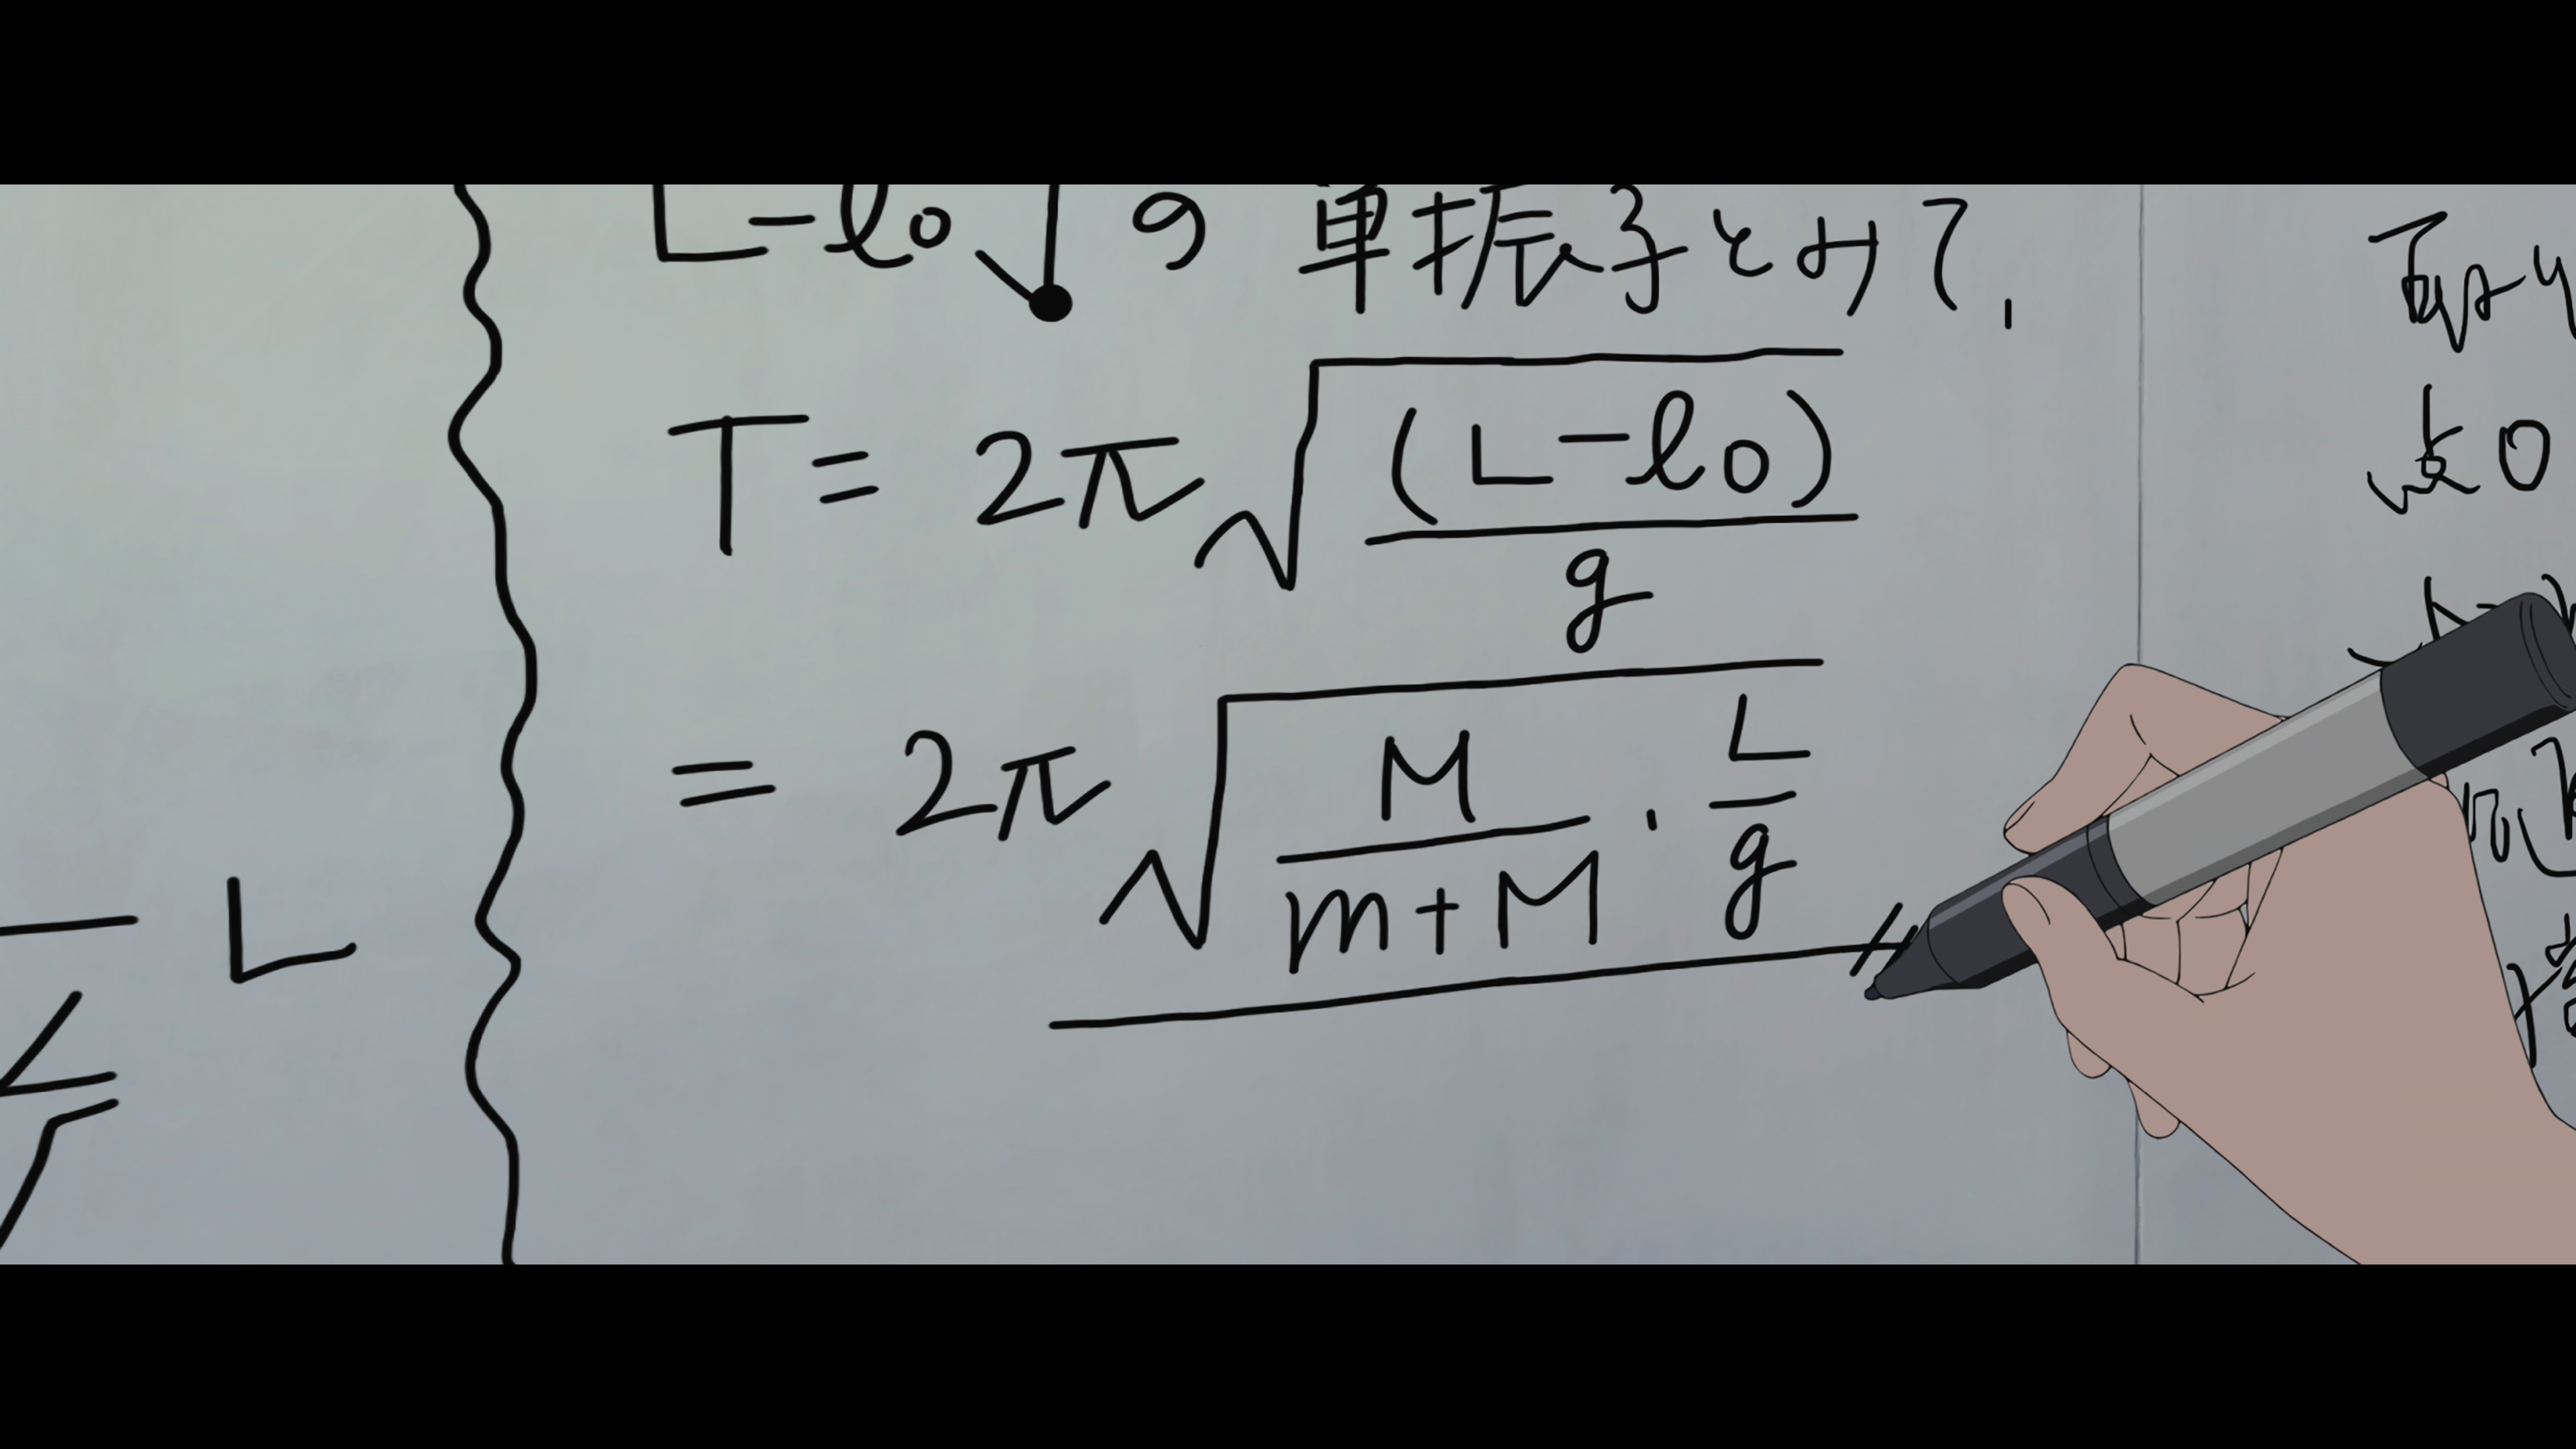 L-l₀ の単振子とみて,
T = 2π√((L-l₀)/g)
= 2π√(M/(m+M)・L/g)
L
点O